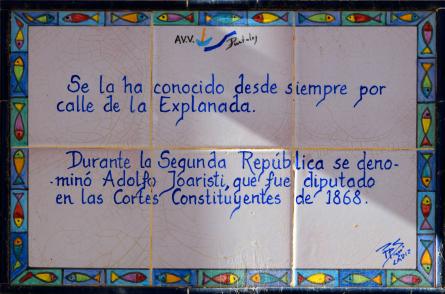 AVV. Puntales
Se la ha conocido desde siempre por
calle de la Explanada.
Durante la Segunda República se deno-
-minó Adolfo Joaristi, que fue diputado
en las Cortes Constituyentes de 1868.
CADIZ